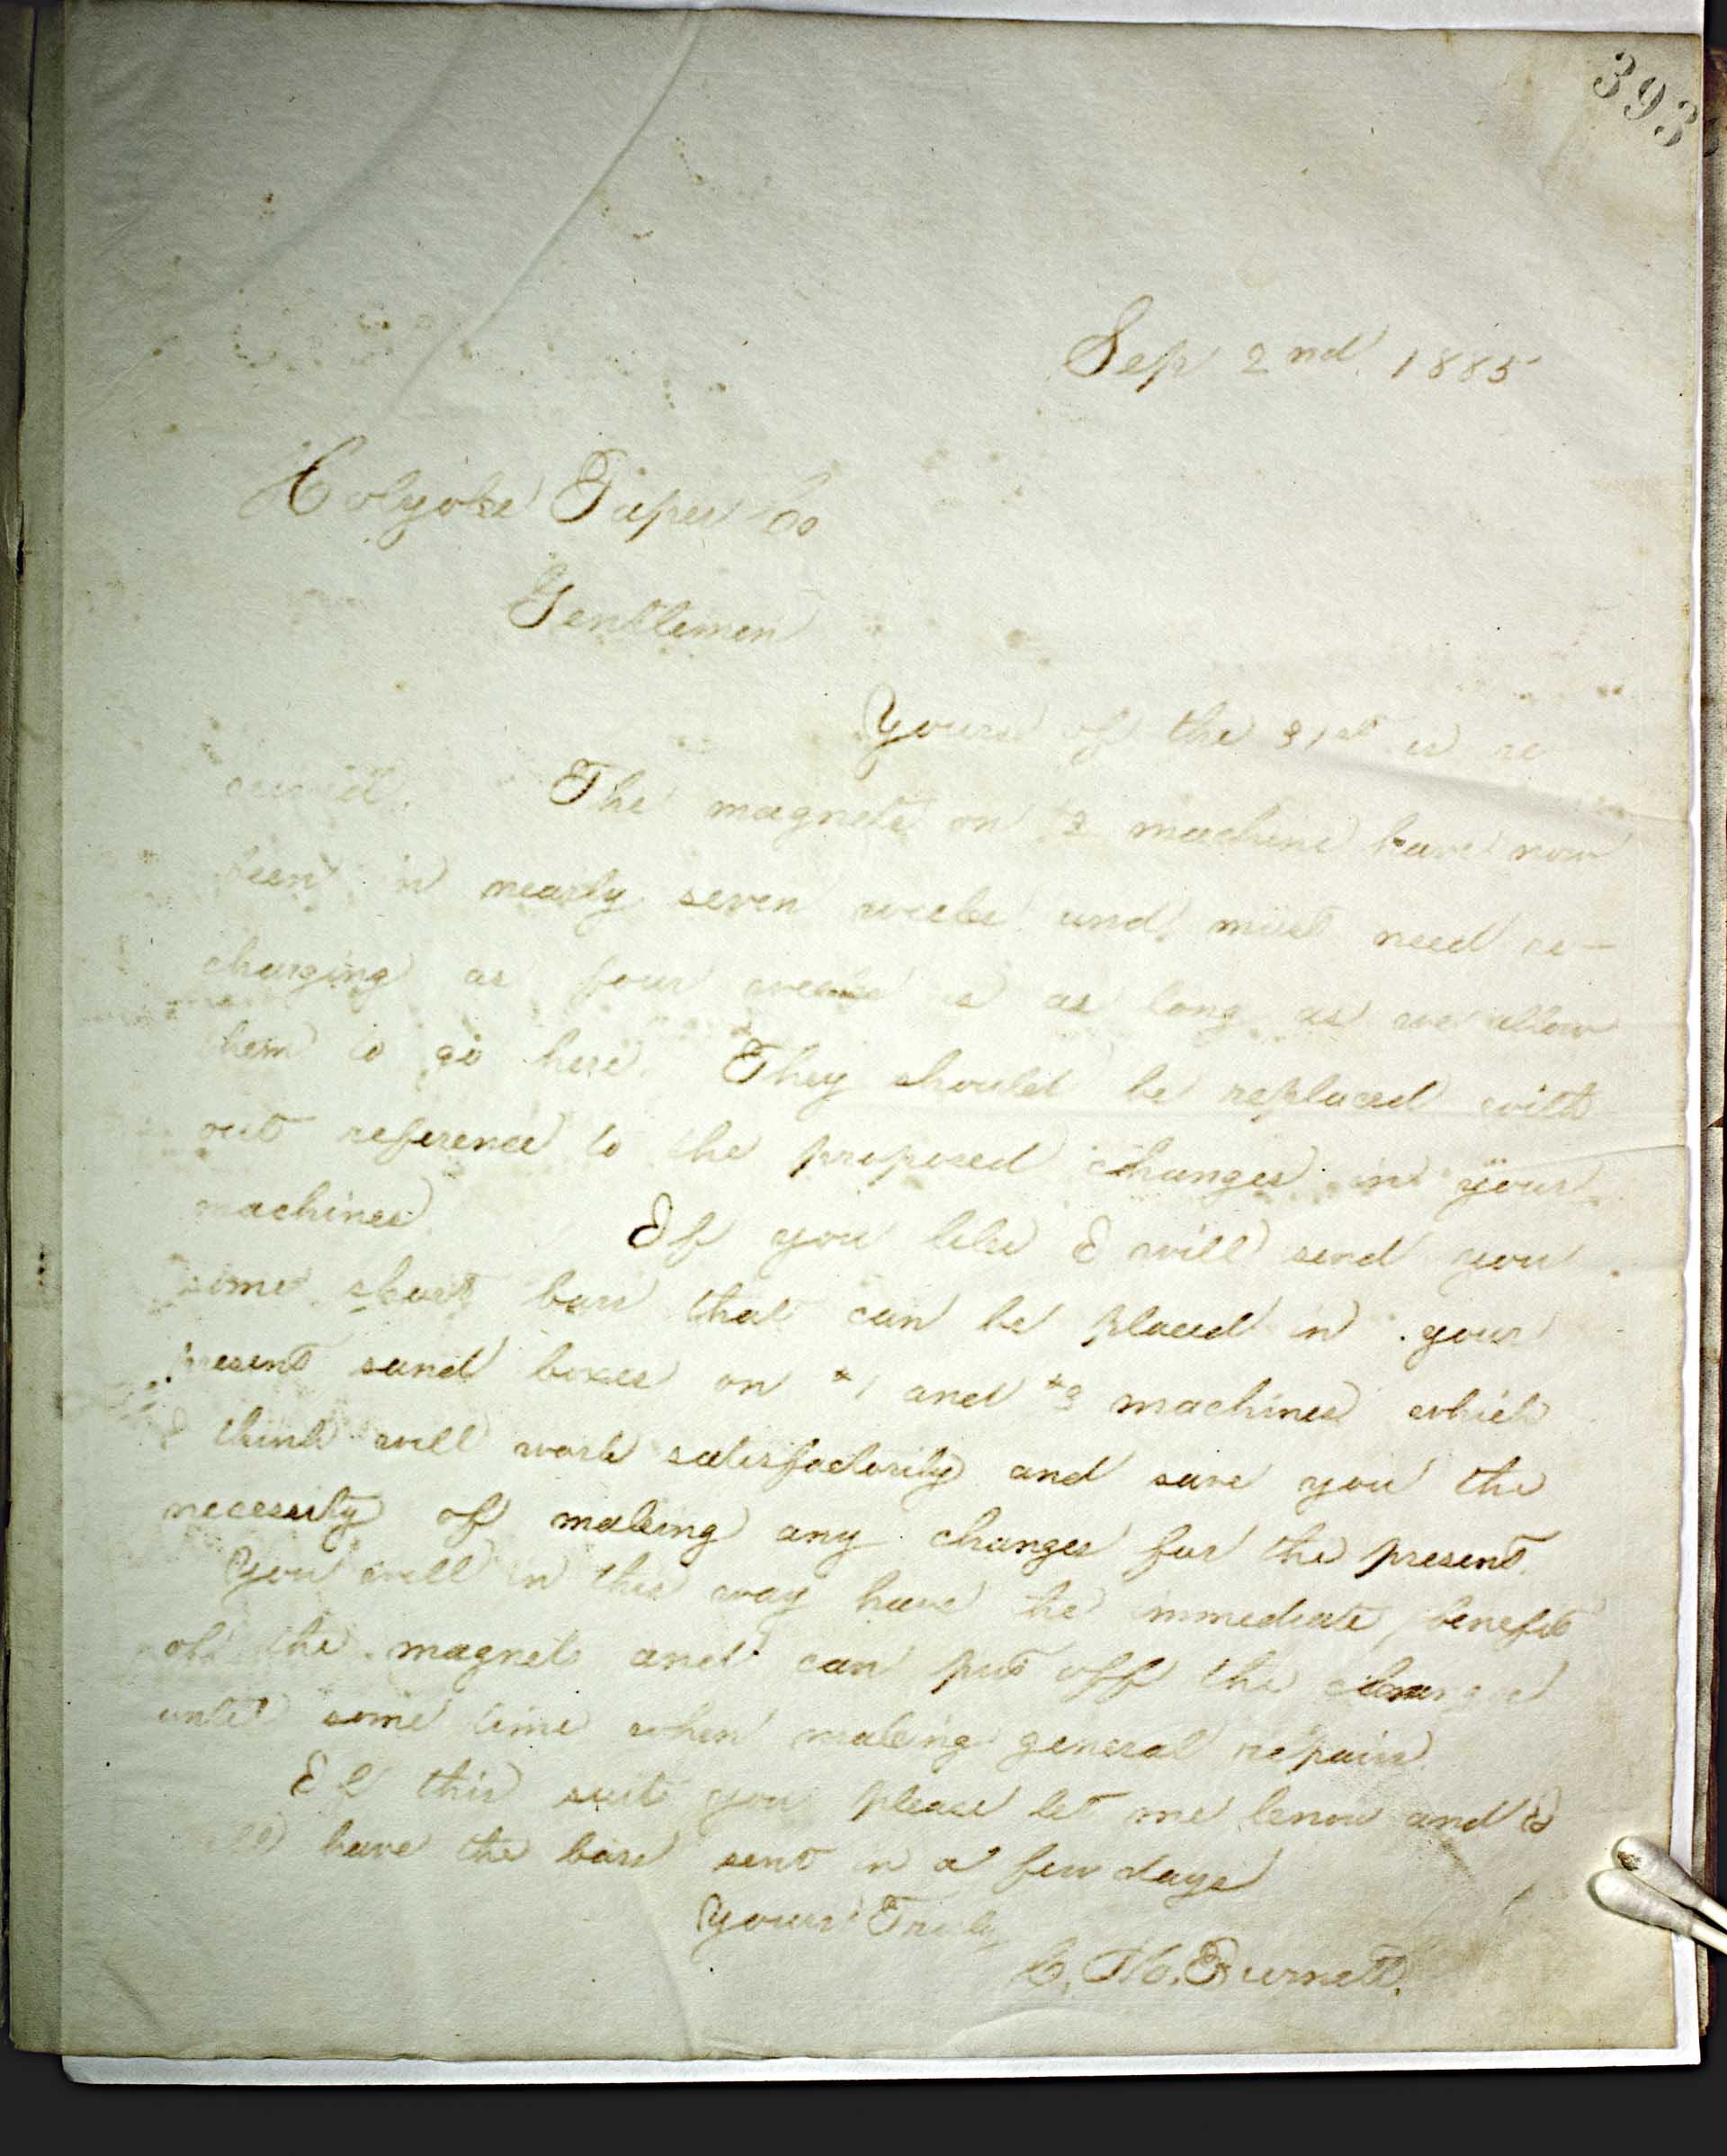 393
Sep 2nd 1885
Holyoke Paper Co
Gentlemen
Yours of the 31st is re
ceived. The magnets on machine have now
been in nearly seven weeks and must need re-
charging as four weeks is as long as we allow
them to go here. They should be replaced with
out reference to the proposed changes in your
machines If you like I will send you
some short bars that can be placed in your
present sand boxes on #1 and #3 machines which
I think will work satisfactorily and save you the
necessity of making any changes for the present.
You will in this way have the immediate benefit
of the magnets and can put off the changes
until some time when making general repairs.
If this suits you please let me know and I
will have the bars sent in a few days
Yours Truly
C. M. Burnett.